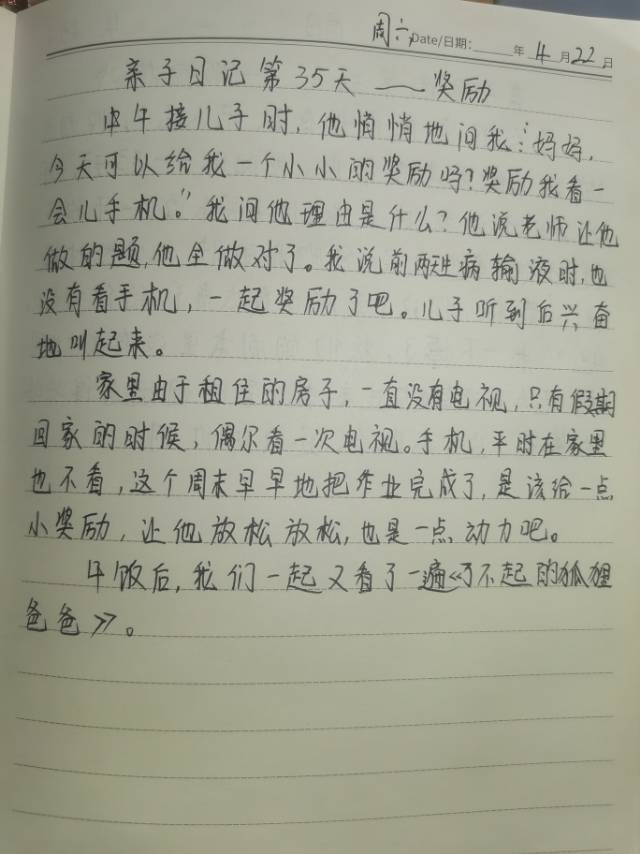 周六 Date/日期: 年 4 月 22 日
亲子日记第35天——奖励
中午接儿子时，他悄悄地问我：“妈妈，
今天可以给我一个小小的奖励吗？奖励我看一
会儿手机。”我问他理由是什么？他说老师让他
做的题，他全做对了。我说前两天生病输液时，也
没有看手机，一起奖励了吧。儿子听到后兴奋
地叫起来。
家里由于租住的房子，一直没有电视，只有假期
回家的时候，偶尔看一次电视。手机，平时在家里
也不看，这个周末早早地把作业完成了，是该给一点
小奖励，让他放松放松，也是一点动力吧。
午饭后，我们一起又看了一遍《了不起的狐狸
爸爸》。